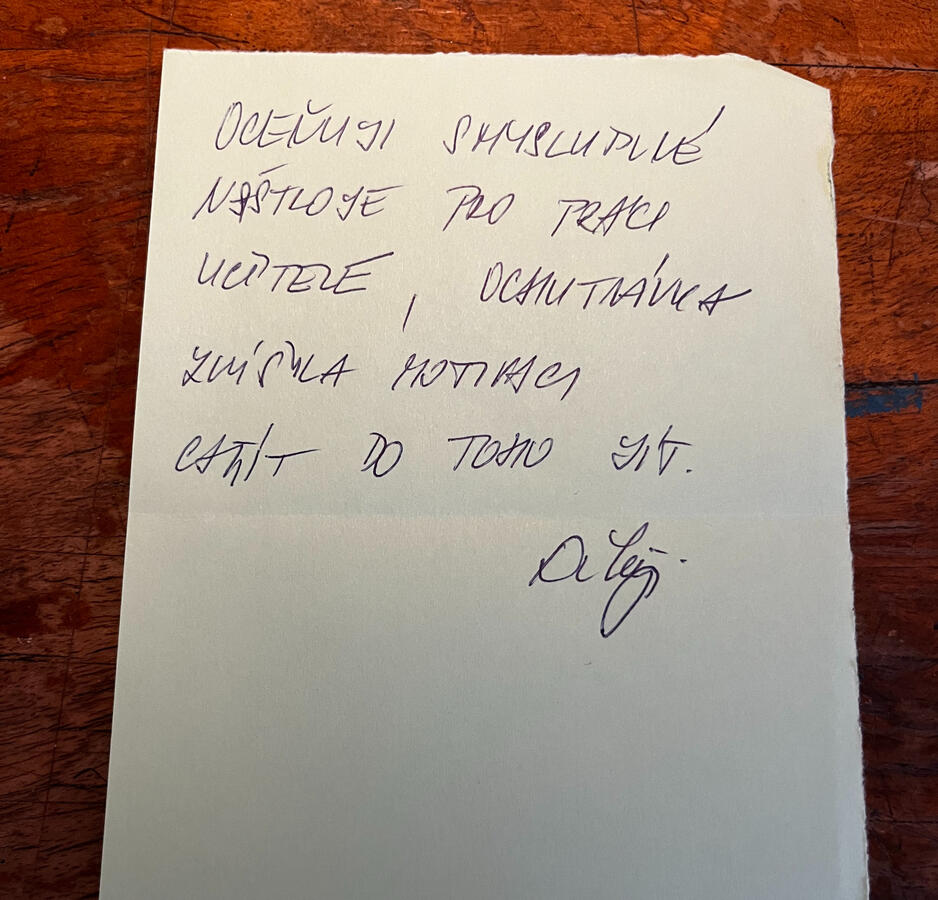 OCEŇUJI SMYSLUPLNÉ
NÁSTROJE PRO PRÁCI
UČITELE, OCHUTNÁVKA
ZVÝŠILA MOTIVACI
CHTÍT DO TOHO JÍT.